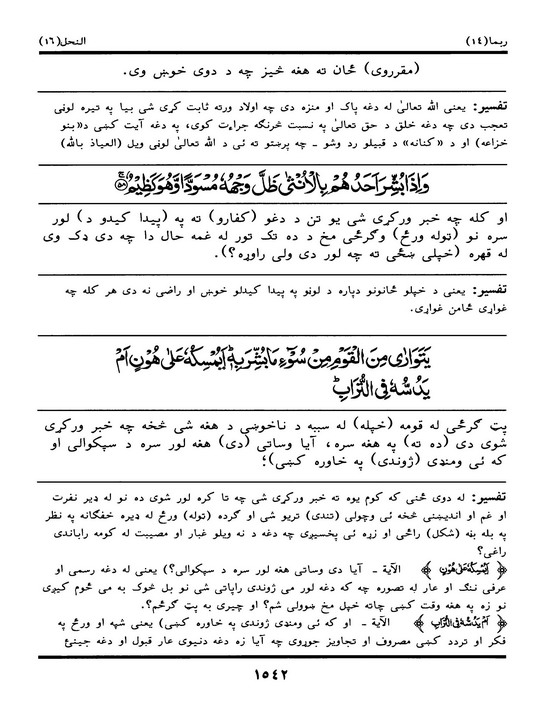 ربما(١٤)
النحل(١٦)
(مقرروی) ځان ته هغه څیز چه د دوی خوښ وی.
تفسیر: یعنی الله تعالیٰ له دغه پاک او منزه دی چه اولاد ورته ثابت کړی شی بیا په تیره لوڼی
تعجب دی چه دغه خلق د حق تعالیٰ په نسبت څرنګه جراءت کوی، په دغه آیت کښی د«بنو
خزاعه) او د «کنانه» د قبیلو رد وشو ـ چه پرښتو ته ئی د الله تعالیٰ لوڼی ویل (العیاذ بالله)
وَاِذَا بُشِّرَ اَحَدُهُمْ بِالْاُنْثٰى ظَلَّ وَجْهُهٗ مُسْوَدًّا وَّهُوَ كَظِيْمٌ ۝٥٨
او کله چه خبر ورکړی شی یو تن د دغو (کفارو) ته په (پیدا کیدو د) لور
سره نو (ټوله ورځ) وګرځی مخ د ده تک تور له غمه حال دا چه دی ډک وی
له قهره (خپلی ښځی ته چه لور دی ولی راوړه؟).
تفسیر: یعنی د خپلو ځانونو دپاره د لوڼو په پیدا کیدلو خوښ او راضی نه دی هر کله چه
غواړی ځامن غواړی.
يَتَوَارٰى مِنَ الْقَوْمِ مِنْ سُوْٓءِ مَا بُشِّرَ بِهٖ ؕ اَيُمْسِكُهٗ عَلٰى هُوْنٍ اَمْ
يَدُسُّهٗ فِى التُّرَابِ ؕ
پټ ګرځی له قومه (خپله) له سببه د ناخوښی د هغه شی څخه چه خبر ورکړی
شوی دی (ده ته) په هغه سره، آیا وساتی (دی) هغه لور سره د سپکوالی او
که ئی ومنډی (ژوندی) په خاوره کښی)؛
تفسیر: له دوی ځنی که کوم یوه ته خبر ورکړی شی چه تا کره لور شوی ده نو له ډیر نفرت
او غم او اندیښنی څخه ئی وچولی (تندی) تریو شی او ګرده (ټوله) ورځ له ډیره خفګانه په نظر
په بله بڼه (شکل) راځی او زړه ئی پخسیږی چه دغه د نه ویلو غبار او مصیبت له کومه راباندی
راغی؟
﴿ اَيُمْسِكُهٗ عَلٰى هُوْنٍ ﴾ الآیة ـ آیا دی وساتی هغه لور سره د سپکوالی؟) یعنی له دغه رسمی او
عرفی ننګ او عار له تصوره چه که دغه لور می ژوندی راپاتی شی نو بل څوک به می څوم کیږی
نو زه په هغه وقت کښی چاته خپل مخ ښوولی شم؟ او چیری به پټ ګرځم؟.
﴿ اَمْ يَدُسُّهٗ فِى التُّرَابِ ﴾ الآیة ـ او که ئی ومنډی ژوندی په خاوره کښی) یعنی شپه او ورځ په
فکر او تردد کښی مصروف او تجاویز جوړوی چه آیا زه دغه دنیوی عار قبول او دغه جینۍ
١٥٤٢